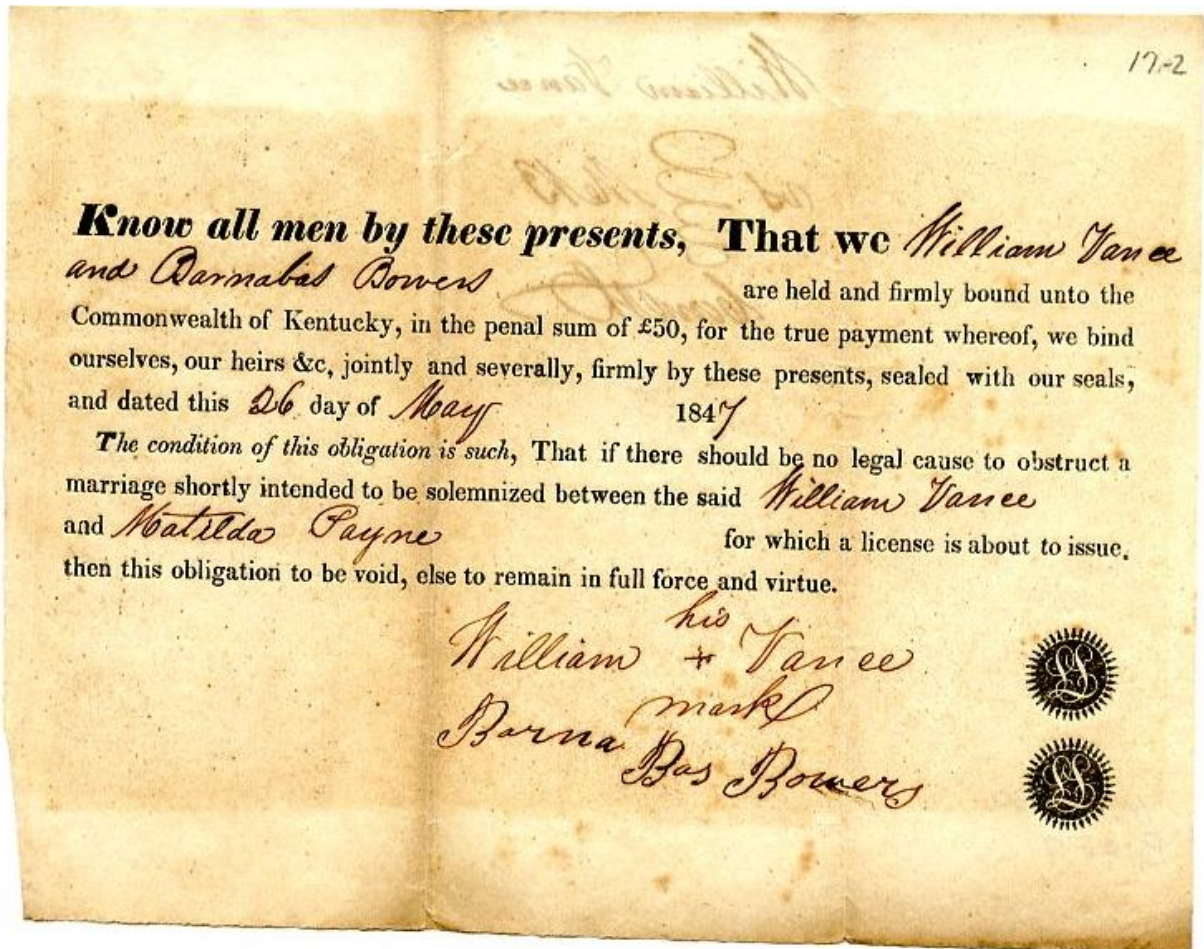 17-2
William Vance
Know all men by these presents, That we William Vance
and Barnabas Bowers are held and firmly bound unto the
Commonwealth of Kentucky, in the penal sum of £50, for the true payment whereof, we bind
ourselves, our heirs &c, jointly and severally, firmly by these presents, sealed with our seals,
and dated this 26 day of May 1847
The condition of this obligation is such, That if there should be no legal cause to obstruct a
marriage shortly intended to be solemnized between the said William Vance
and Matilda Payne for which a license is about to issue.
then this obligation to be void, else to remain in full force and virtue.
his
William + Vance
mark
Barna Bas Bowers
LS
LS